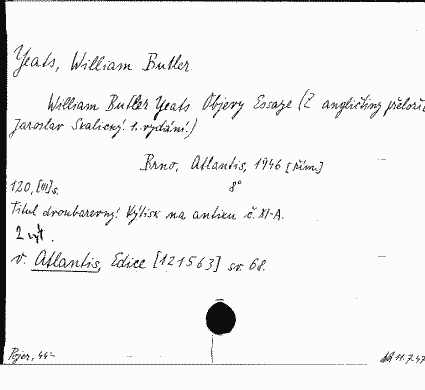 Yeats, William Butler.
William Butler Yeats Objevy Essaye (Z angličtiny přeložil
Jaroslav Skalický. 1. vydání.)
Brno, Atlantis, 1946
120, [III] s. 8°
Titul dvoubarevný. Výtisk na antiku č. XI-A.
2 výt.
v. Atlantis, Edice [121563] sv. 68.
Pojer, 44-
11.7.47